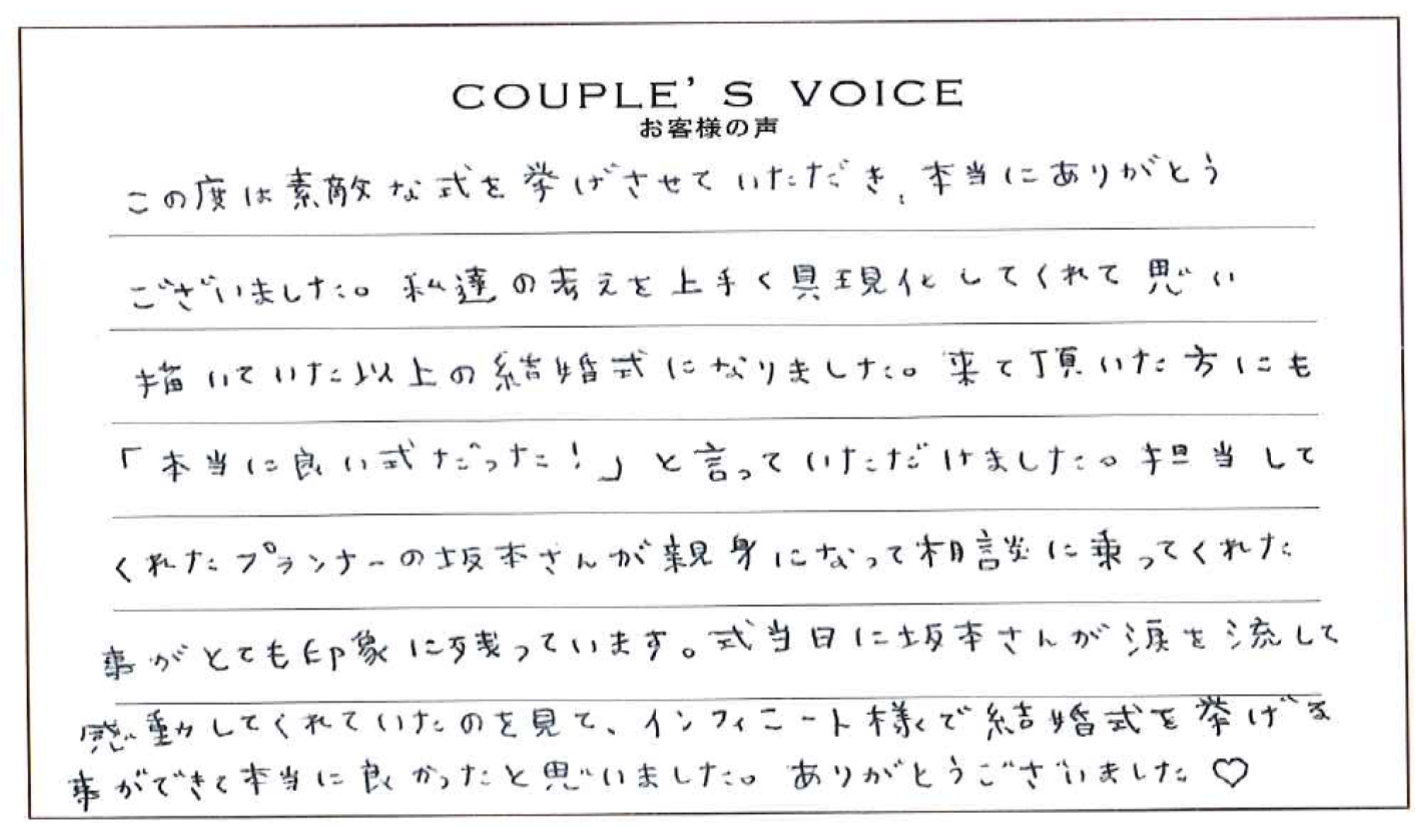 COUPLE'S VOICE
お客様の声
この度は素敵な式を挙げさせていただき、本当にありがとう
ございました。私達の考えを上手く具現化してくれて思い
描いていた以上の結婚式になりました。来て頂いた方にも
「本当に良い式だった!」と言っていただけました。担当して
くれたプランナーの坂本さんが親身になって相談に乗ってくれた
事がとても印象に残っています。式当日に坂本さんが涙を流して
感動してくれていたのを見て、インフィニート様で結婚式を挙げる
事ができて本当に良かったと思いました。ありがとうございました♡